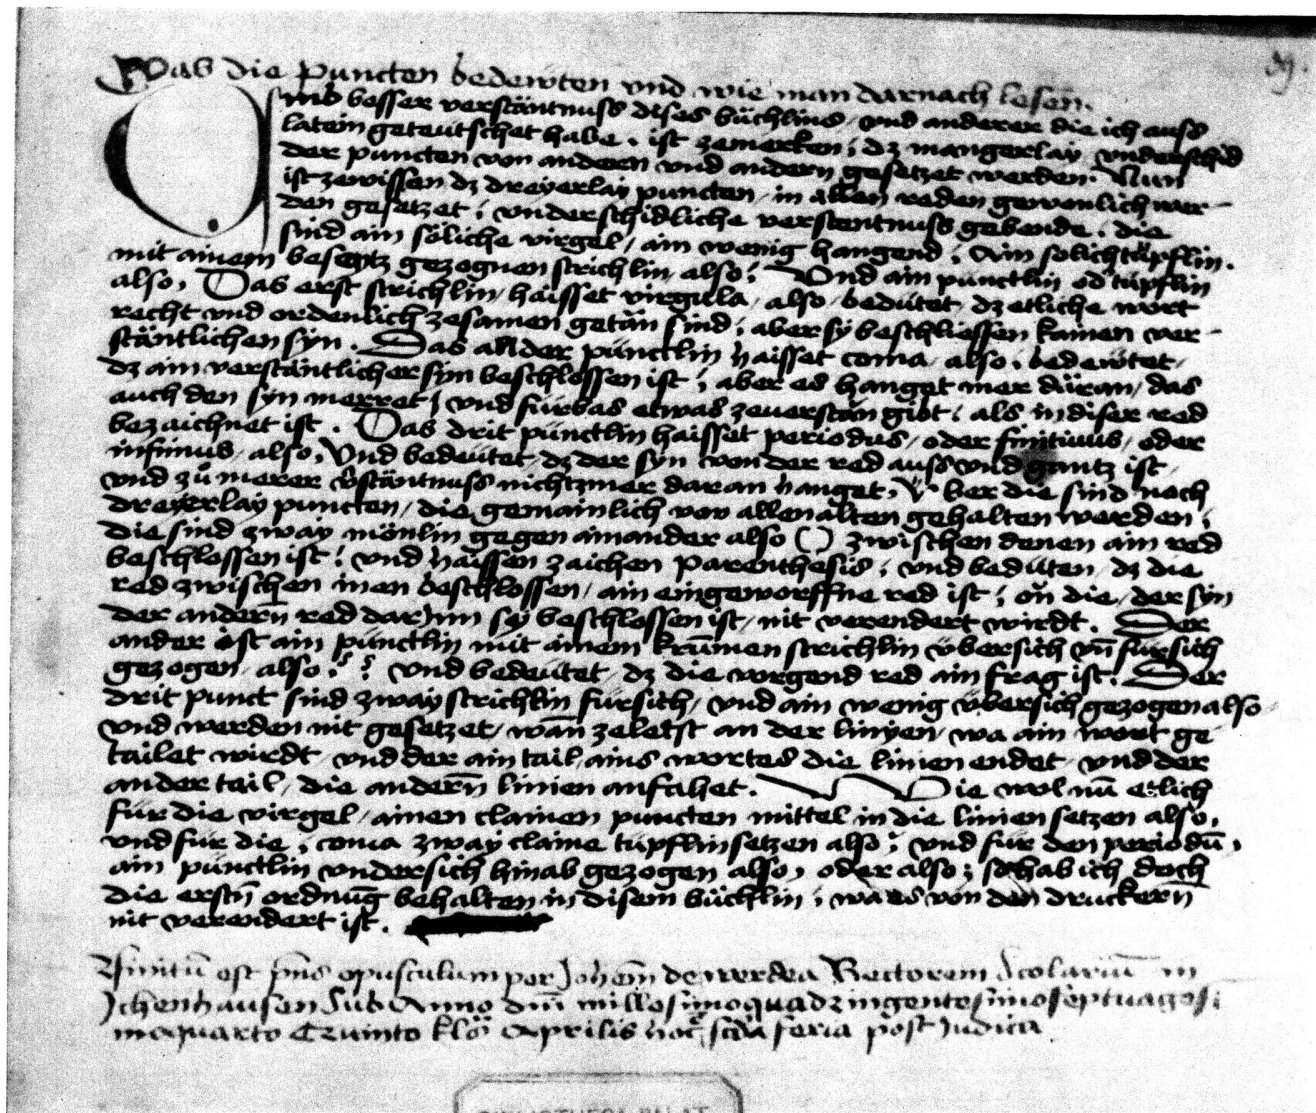 Was die puncten bedewten vnd wie man darnach lesen.
Umb besser verstäntnuss dises büchlins / vnd anderer die ich auss
latein geteutschet habe . ist zemerken ; dz mangerlay vnderschid
der puncten von andern vnd andern gesetzet werden . Nun
ist zewissen dz dreyerlay puncten / in allen reden gewonlich wer-
den gesetzet ; vnderschidliche verstentnuss gebende . die
sind ain söliche virgel / ain wenig hangend ; Ain solich tüpflin .
mit ainem besentz gezognen strichlin also ; Vnd ain pünctlin od tüpflin
also . Das erst strichlin / haisset virgula / also / bedütet / dz etliche wort
recht vnd ordenlich zesamen getän sind ; aber sy beschliessen kainen ver-
stäntlichen syn . Das annder pünctlin haisset coma / also ; bedewtet /
dz ain verstäntlicher syn beschlossen ist ; aber es hanget mer däran / das
auch den syn merret / vnd fürbas etwas zeuerstän gibt ; als in diser red
bezaichnet ist . Das drit pünctlin haisset periodus / oder finitiuus / oder
infimus / also . Vnd bedeutet / dz der syn von der red auss vnd gantz ist /
vnd zů merer v̄stäntnuss nichtzmer daran hanget . Vber die sind noch
dreyerlay puncten / die gemainlich von allen alten gehalten werden ;
die sind zway mönlin gegen ainander also ( ) zwischen denen ain red
beschlossen ist ; vnd haissen zaichen parenthesis ; vnd bedüten / dz die
red zwischen inen beschlossen / ain eingeworffne red ist ; on̄ die / der syn
der andern̄ red dar Jnn sy beschlossen ist / nit verendert wirdt . Der
ander ist ain pünctlin mit ainem krum̄en strichlin übersich vn̄ fürsich
gezogen / also . ? ? vnd bedeutet / dz die vorgend red ain frag ist . Der
drit punct sind zway strichlin fürsich / vnd ain wenig übersich gezogen also
vnd werden nit gesetzet / wan̄ zeletst an der linyen / wa ain wort ge
tailet wirdt / vnd der ain tail / ains wortes die linien endet / vnd der
ander tail / die andern̄ linien anfahet . Wie wol nū etlich
für die virgel / ainen clainen puncten mittel in die linien setzen also .
vnd für die ; coma zway claine tüpflin setzen also : vnd für den periodū .
ain pünctlin vndersich hinab gezogen also , oder also ; so hab ich doch
die erstn̄ ordnūg behalten in disem büchlin ; wa es von den druckern̄
nit verendert ist .
Finitū est pn̄s opusculum per Joh̄em de werdea Rectorem Scolariū in
Jchenhausen Sub Anno dn̄i millesimoquadringentesimoseptuagesi
moquarto Quinto kl̄n Aprilis hoc scd̄a feria post Judica
BIBLIOTHECA PALAT